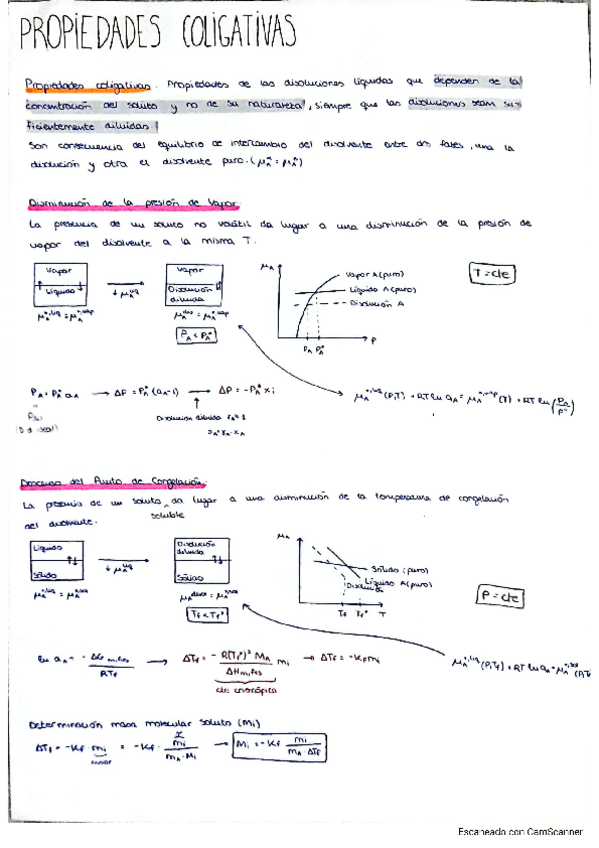 PROPIEDADES COLIGATIVAS
Propiedades coligativas. Propiedades de las disoluciones líquidas que dependen de la
concentración del soluto y no de su naturaleza, siempre que las disoluciones sean su-
ficientemente diluidas.
Son consecuencia del equilibrio de intercambio del disolvente entre dos fases, una la
disolución y otra el disolvente puro.
Disminución de la presión de vapor.
La presencia de un soluto no volátil da lugar a una disminución de la presión de
vapor del disolvente a la misma T.
Vapor
Líquido
Vapor
Disolución
diluida
PA < PA*
μA
Vapor A (puro)
Líquido A (puro)
Disolución A
PA PA*
P
T = cte
PA = PA* aA → ΔP = PA* (aA-1) → ΔP = -PA* xi
Disolución diluida
Descenso del Punto de Congelación.
La presencia de un soluto soluble da lugar a una disminución de la temperatura de congelación
del disolvente.
Líquido
Sólido
Disolución
diluida
Sólido
Tf < Tf*
μA
Sólido (puro)
Líquido A (puro)
Disolución
Tf Tf*
T
P = cte
ΔTf = - R(Tf*)² MA / ΔHm,fus mi → ΔTf = -Kf mi
cte crioscópica
Determinación masa molecular soluto (Mi)
Escaneado con CamScanner